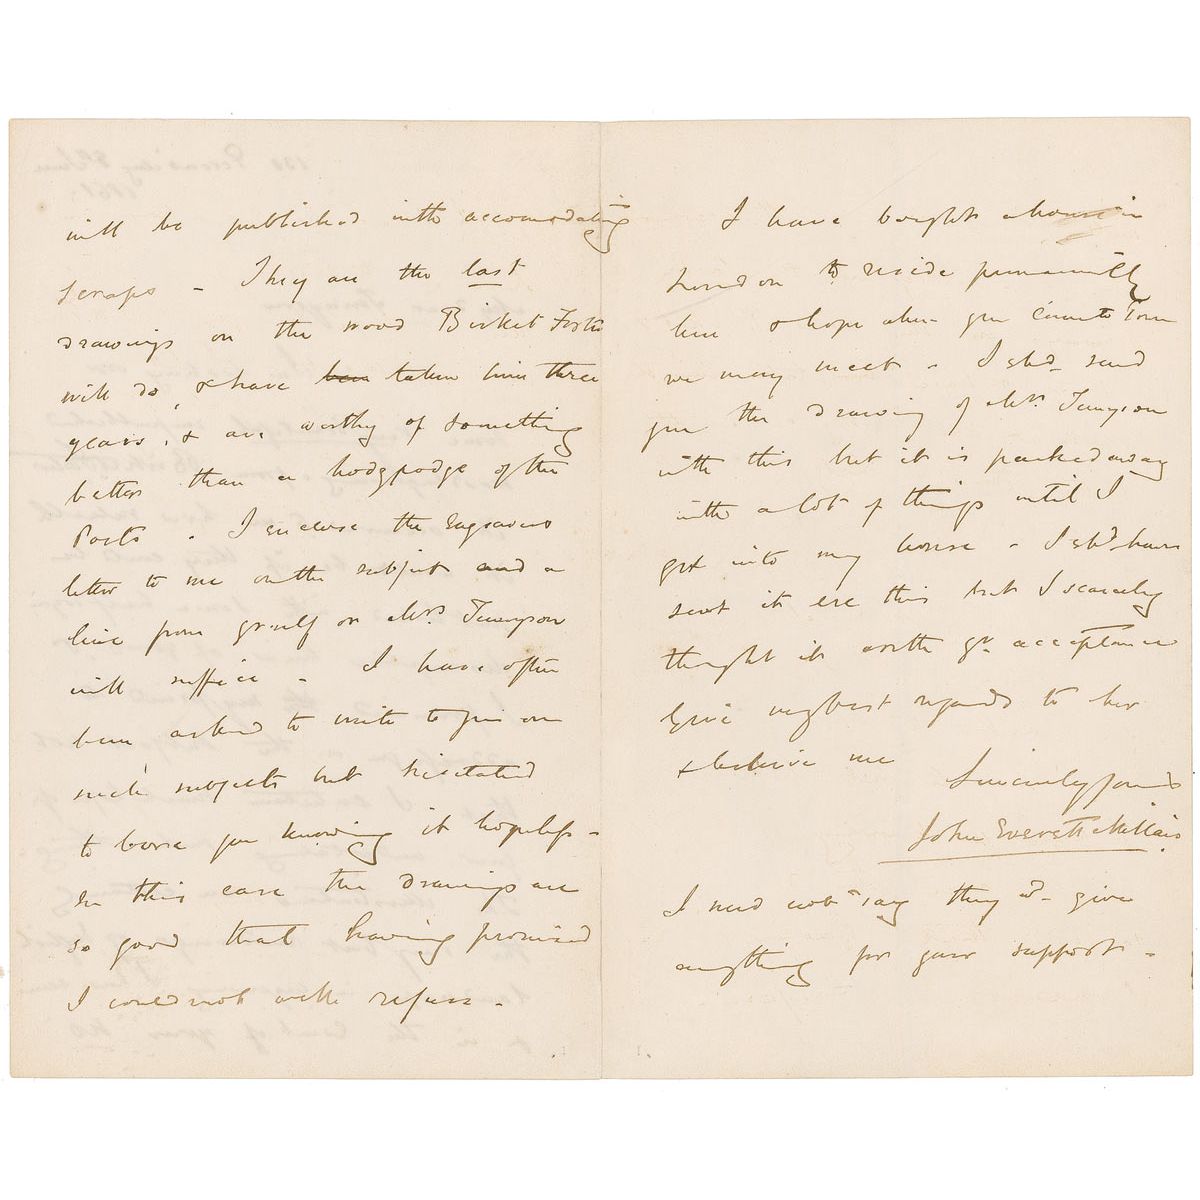 will be published with accomodating
scraps - They are the last
drawings on the wood Birket Foster
will do, & have been taken him three
years, & are worthy of something
better than a hodgpodge of the
Poets - I enclose the Engravers
letter to me on the subject and a
line from yrself or Mrs. Tennyson
will suffice - I have often
been asked to write to you on
such subjects but hesitated
to bore you knowing it hopeless -
In this case the drawings are
so good that having promised
I could not well refuse -
I have bought a house in
London to reside permanently
here & hope when you come to Town
we may meet - I shd. send
you the drawing of Mrs. Tennyson
with this but it is packed away
with a lot of things until I
get into my house - I shd. have
sent it ere this but I scarcely
thought it worth yr. acceptance
Give my best regards to her
& believe me
Sincerely yours
John Everett Millais
I need not say they wd. give
anything for your support -